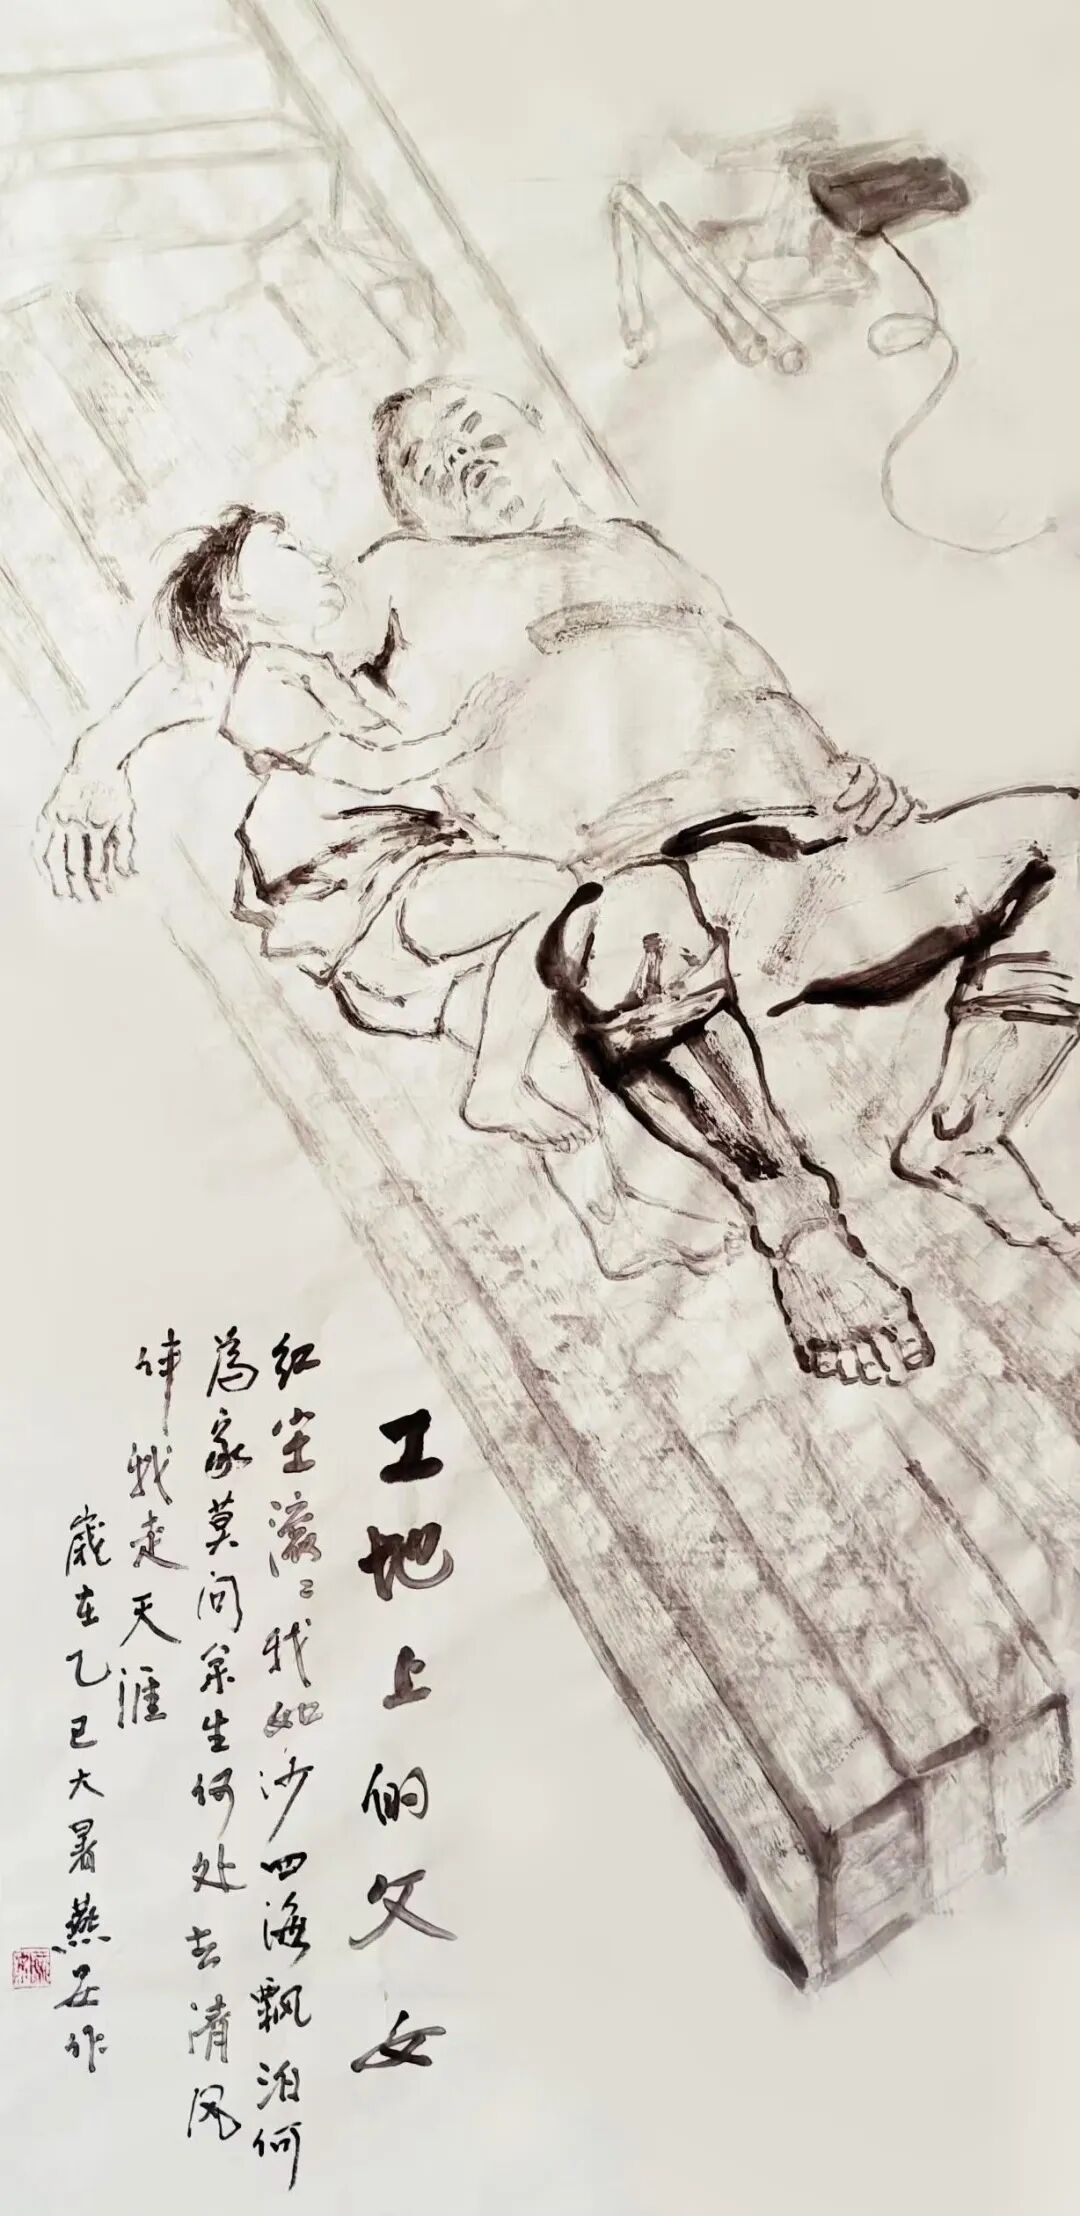 工地上的父女
红尘滚〻我如沙四海飘泊何
為家莫问余生何处去清风
伴我走天涯
歲在乙巳大暑燕在作